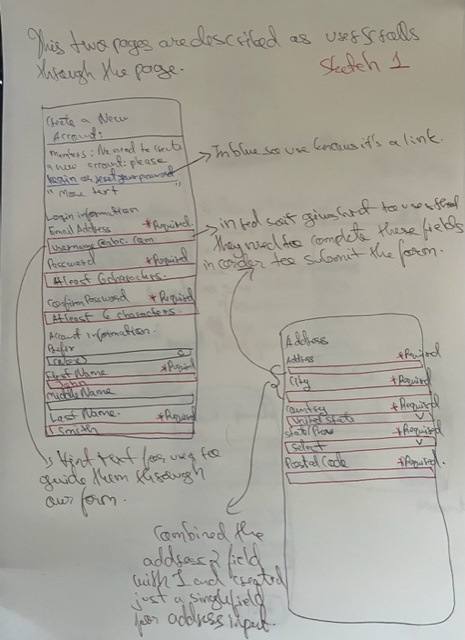 This two pages are described as user scrolls
through the page.
Sketch 1
Create a New
Account:
Members: No need to create
a new account: please
login or reset your password
"more text"
Login information
Email Address *Required
Username@abc.com
Password *Required
At least 6 characters.
Confirm Password *Required
At least 6 characters.
Account information.
Prefix
<select>
First Name *Required
John
Middle Name
Last Name. *Required
Smith
In blue so use knows it's a link.
in red so it gives hint to user that
they need to complete these fields
in order too submit the form.
Hint text for user to
guide them through
our form.
Address
Address *Required
City *Required
Country *Required
United States
State/Prov *Required
Select
Postal Code *Required.
Combined the
address 2 field
with 1 and created
just a single field
for address input.